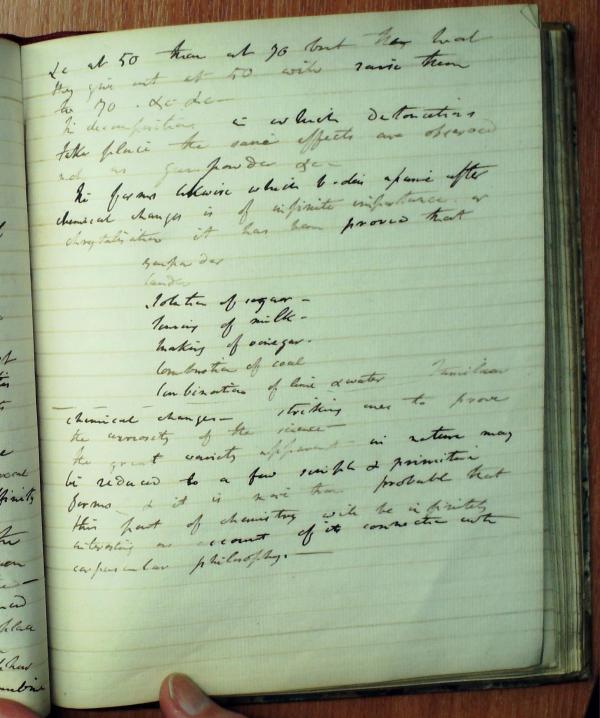 &c at 50 than at 70 but the heat
they give out at 50 will raise them
to 70. &c &c—
In decompositions in which detonations
take place the same effects are observed
as gunpowder &c—
The forms likewise which bodies assume after
chemical changes is of infinite importance. or
chrystalisation it has been proved that
gunpowder
Solution of sugar—
Souring of milk—
Making of vinegar.
Combustion of coal
Combination of lime & water Familiar
— chemical changes— striking ones to prove
the curiosity of the science—
The great variety apparent in nature may
be reduced to a few simple & primitive
forms & it is more than probable that
this part of chemistry will be infinitely
interesting on account of its connection with
corpuscular philosophy.—